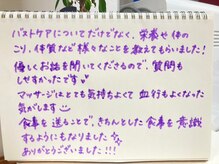 バストケアについてだけでなく、栄養や体の
こり、体質など様々なことを教えてもらいました!
優しくお話を聞いてくださるので、質問も
しやすかったです♥
マッサージはとても気持ちよくて血行もよくなった
気がします☺
食事を送ることで、きちんとした食事を意識
するようにもなりました☆
ありがとうございました!!!